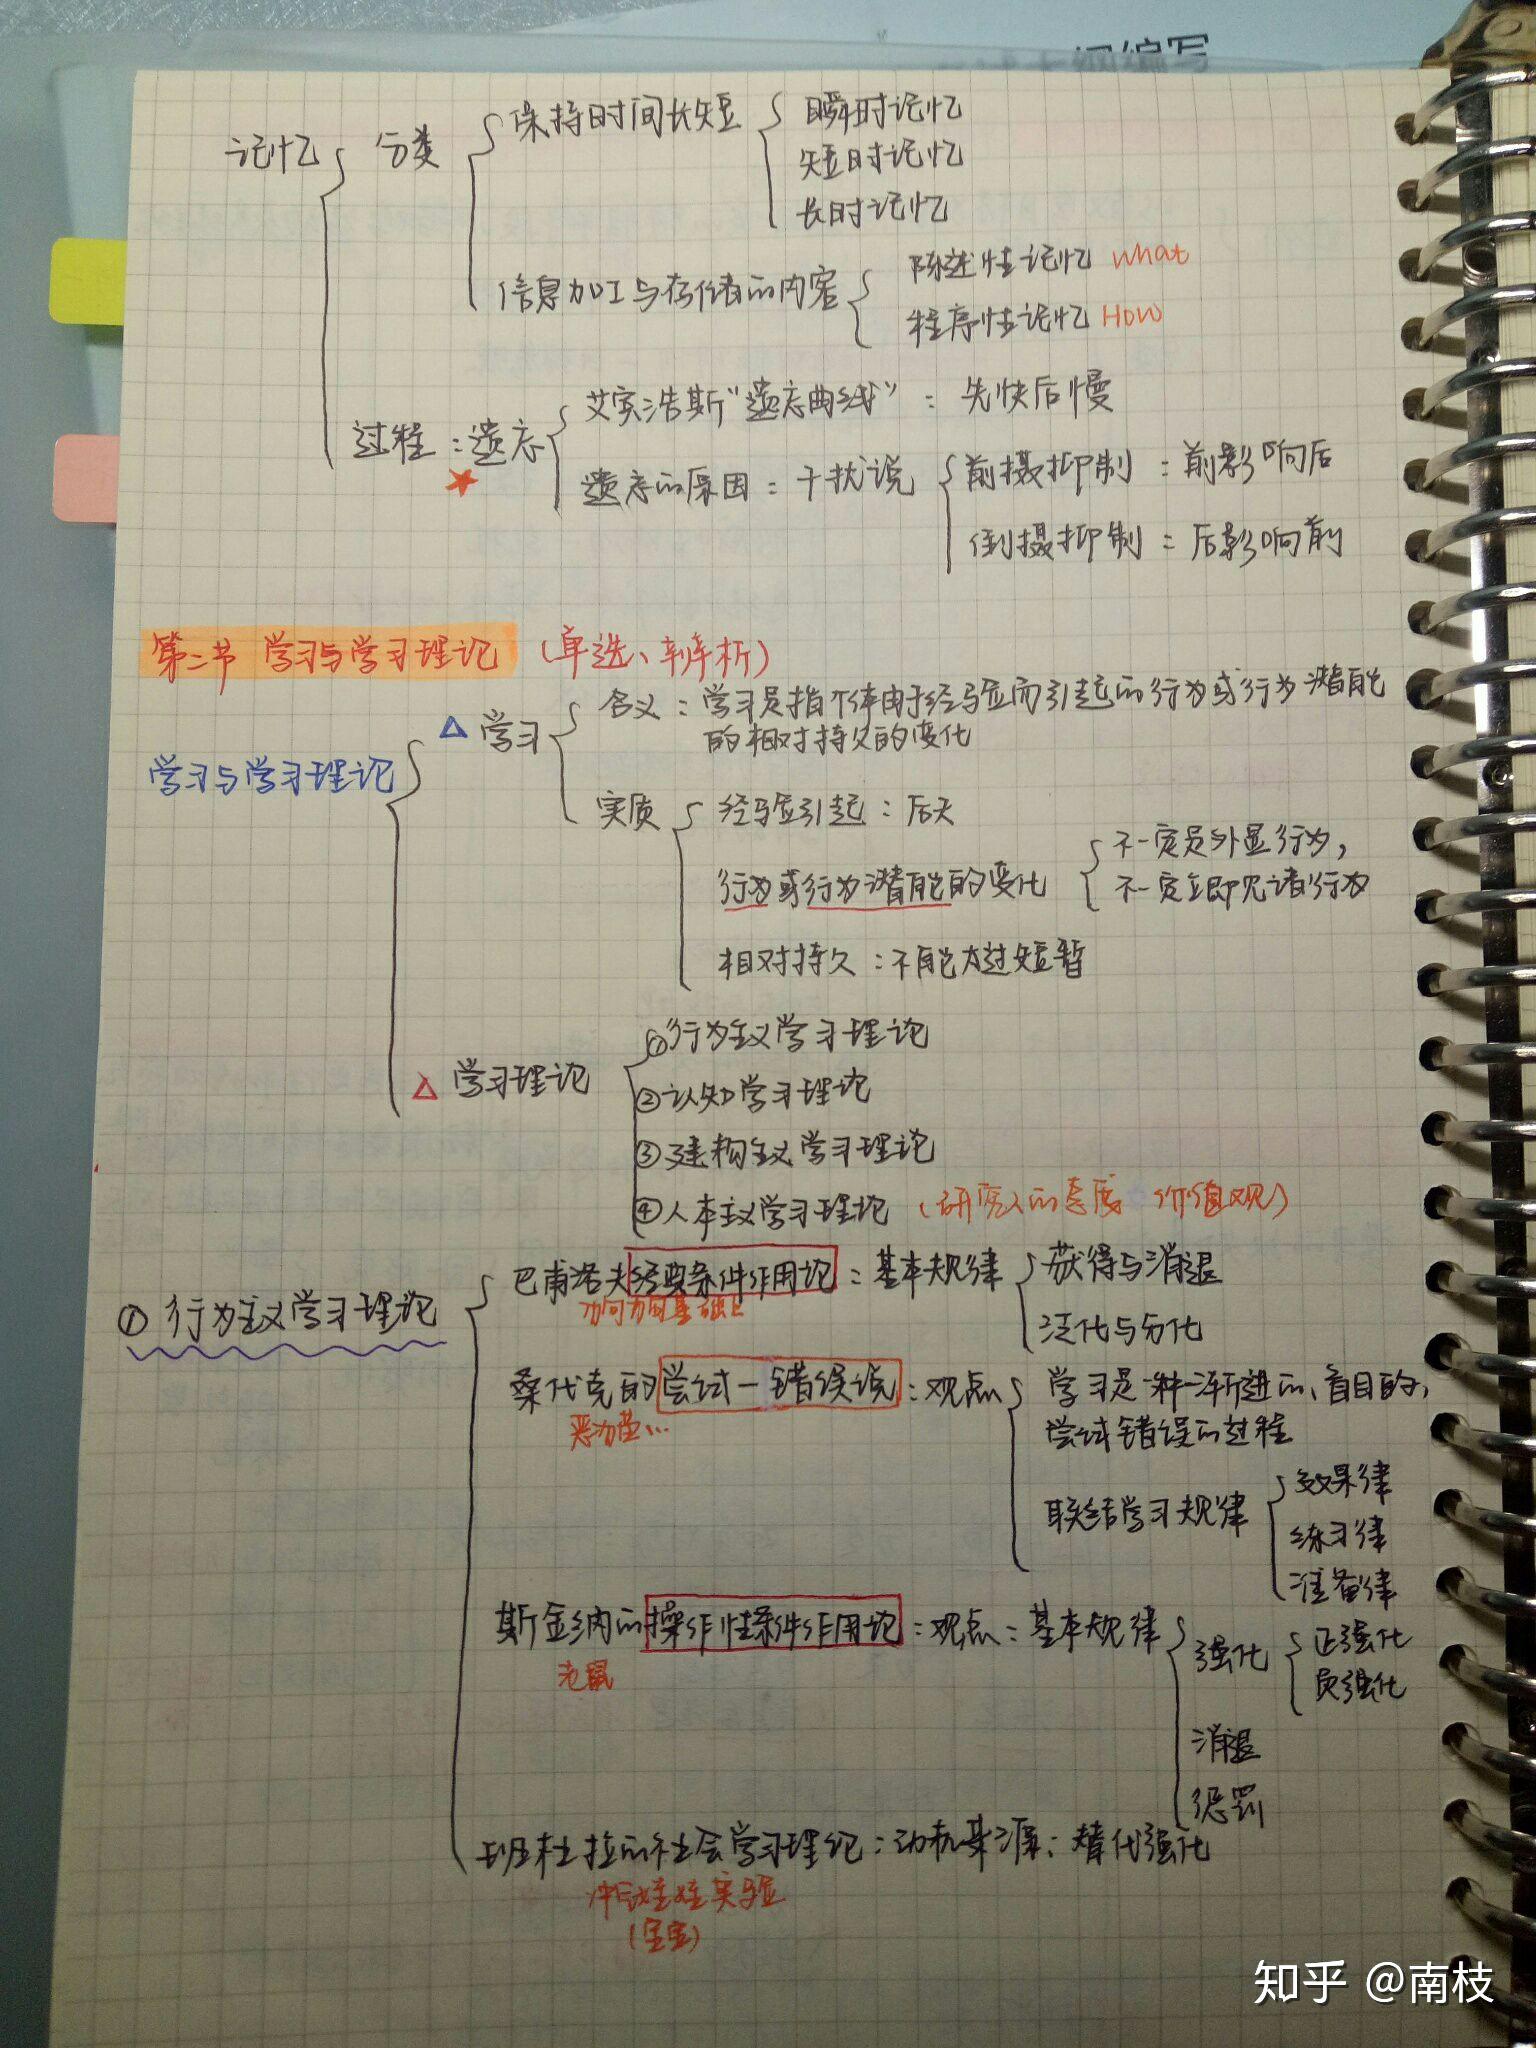 大纲编写
保持时间长短
瞬时记忆
记忆
分类
短时记忆
长时记忆
信息加工与存储的内容
陈述性记忆 what
程序性记忆 How
艾宾浩斯“遗忘曲线”：先快后慢
过程：遗忘
遗忘的原因：干扰说
前摄抑制：前影响后
倒摄抑制：后影响前
第二节 学习与学习理论（单选、辨析）
含义：学习是指个体由于经验而引起的行为或行为潜能
的相对持久的变化
学习与学习理论
△ 学习
实质
经验引起：后天
行为或行为潜能的变化
不一定是外显行为，
不一定立即见诸行为
相对持久：不能太过短暂
①行为主义学习理论
△ 学习理论
②认知学习理论
③建构主义学习理论
④人本主义学习理论（研究人的态度 价值观）
① 行为主义学习理论
巴甫洛夫经典条件作用论：基本规律
获得与消退
泛化与分化
桑代克的尝试一错误说：观点
学习是一种渐进的、盲目的，
尝试错误的过程
联结学习规律
效果律
练习律
准备律
斯金纳的操作性条件作用论：观点：基本规律
老鼠
强化
正强化
负强化
消退
惩罚
班杜拉的社会学习理论：动机来源：替代强化
娃娃实验
（宝宝）
知乎 @南枝